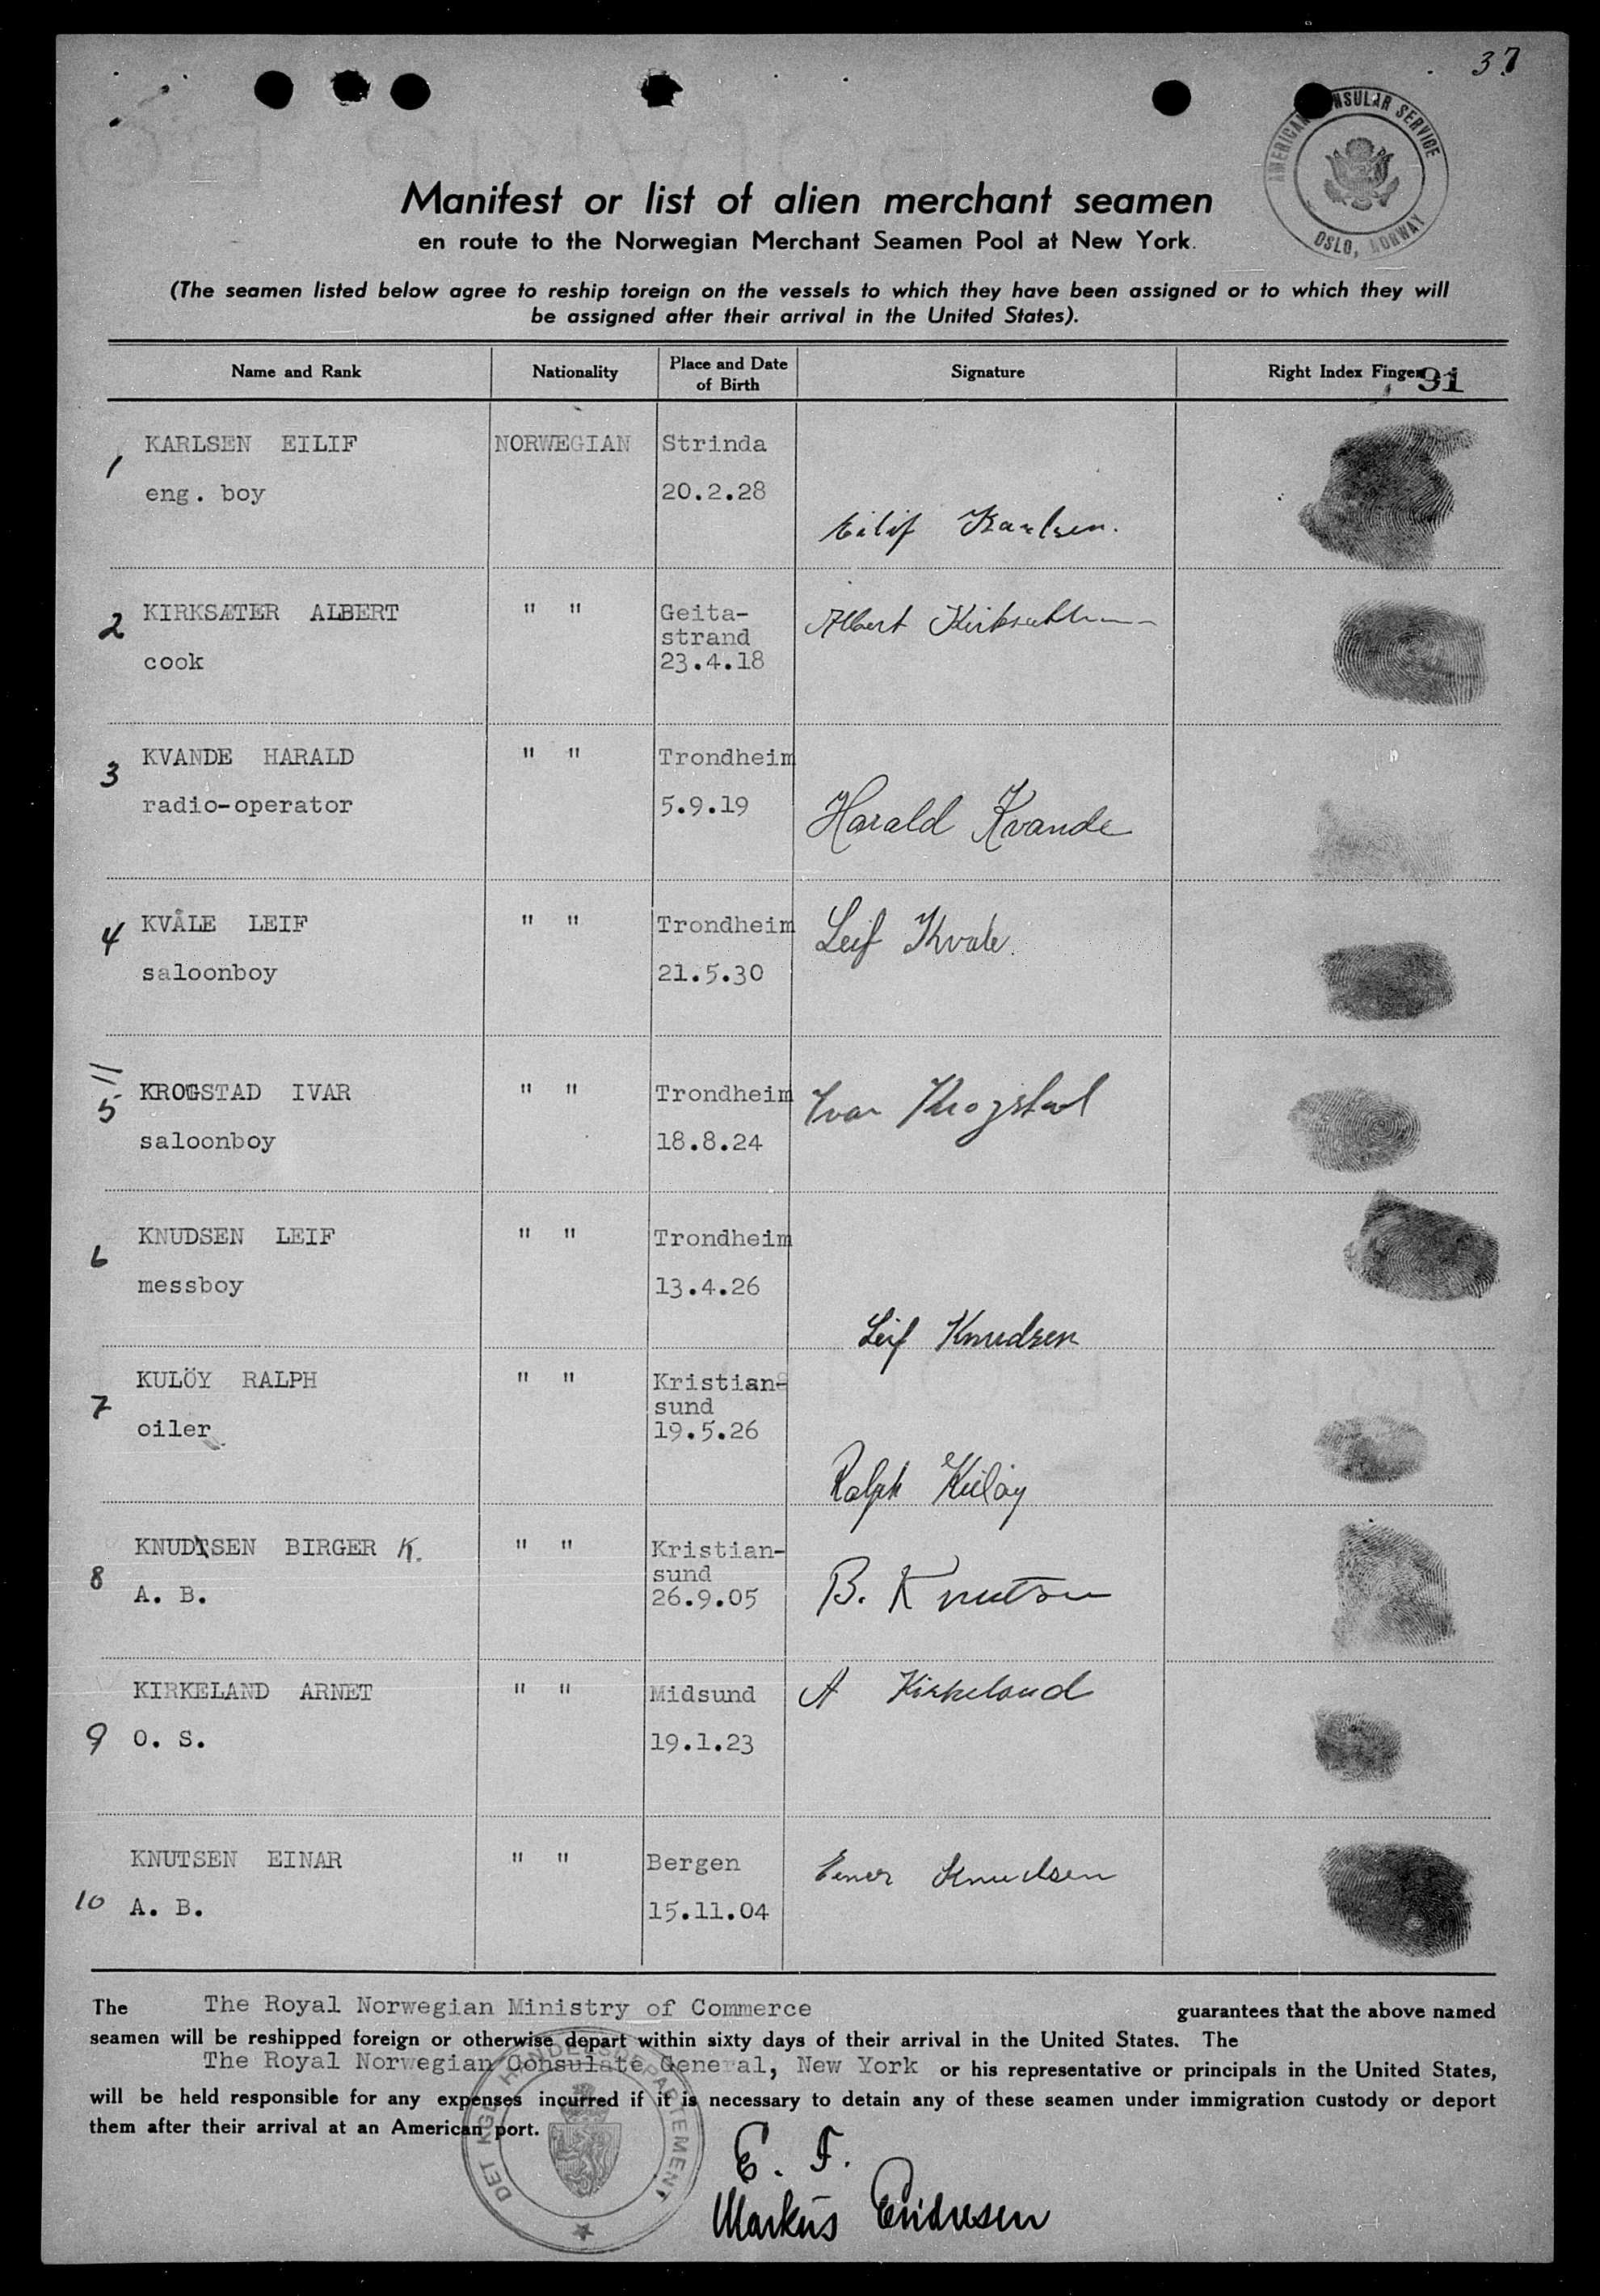 37
AMERICAN CONSULAR SERVICE
OSLO, NORWAY
Manifest or list of alien merchant seamen
en route to the Norwegian Merchant Seamen Pool at New York.
(The seamen listed below agree to reship foreign on the vessels to which they have been assigned or to which they will
be assigned after their arrival in the United States).
Name and Rank Nationality Place and Date of Birth Signature Right Index Finger 91
1 KARLSEN EILIF NORWEGIAN Strinda
eng. boy 20.2.28
Eilif Karlsen.
2 KIRKSÆTER ALBERT " " Geita-
strand
cook 23.4.18
Albert
3 KVANDE HARALD " " Trondheim
radio-operator 5.9.19
Harald Kvande
4 KVÅLE LEIF " " Trondheim
saloonboy 21.5.30
Leif Kvale.
5 KROGSTAD IVAR " " Trondheim
saloonboy 18.8.24
Ivar Krogstad
6 KNUDSEN LEIF " " Trondheim
messboy 13.4.26
Leif Knudsen
7 KULÖY RALPH " " Kristian-
sund
oiler 19.5.26
Ralph Kulöy
8 KNUDTSEN BIRGER K. " " Kristian-
sund
A. B. 26.9.05
B. Knutsen
9 KIRKELAND ARNET " " Midsund
O. S. 19.1.23
A Kirkeland
10 KNUTSEN EINAR " " Bergen
A. B. 15.11.04
Einer Knudsen
The The Royal Norwegian Ministry of Commerce guarantees that the above named
seamen will be reshipped foreign or otherwise depart within sixty days of their arrival in the United States. The
The Royal Norwegian Consulate General, New York or his representative or principals in the United States,
will be held responsible for any expenses incurred if it is necessary to detain any of these seamen under immigration custody or deport
them after their arrival at an American port.
DET KGL. HANDELSDEPARTEMENT
E. F.
Markus Endresen